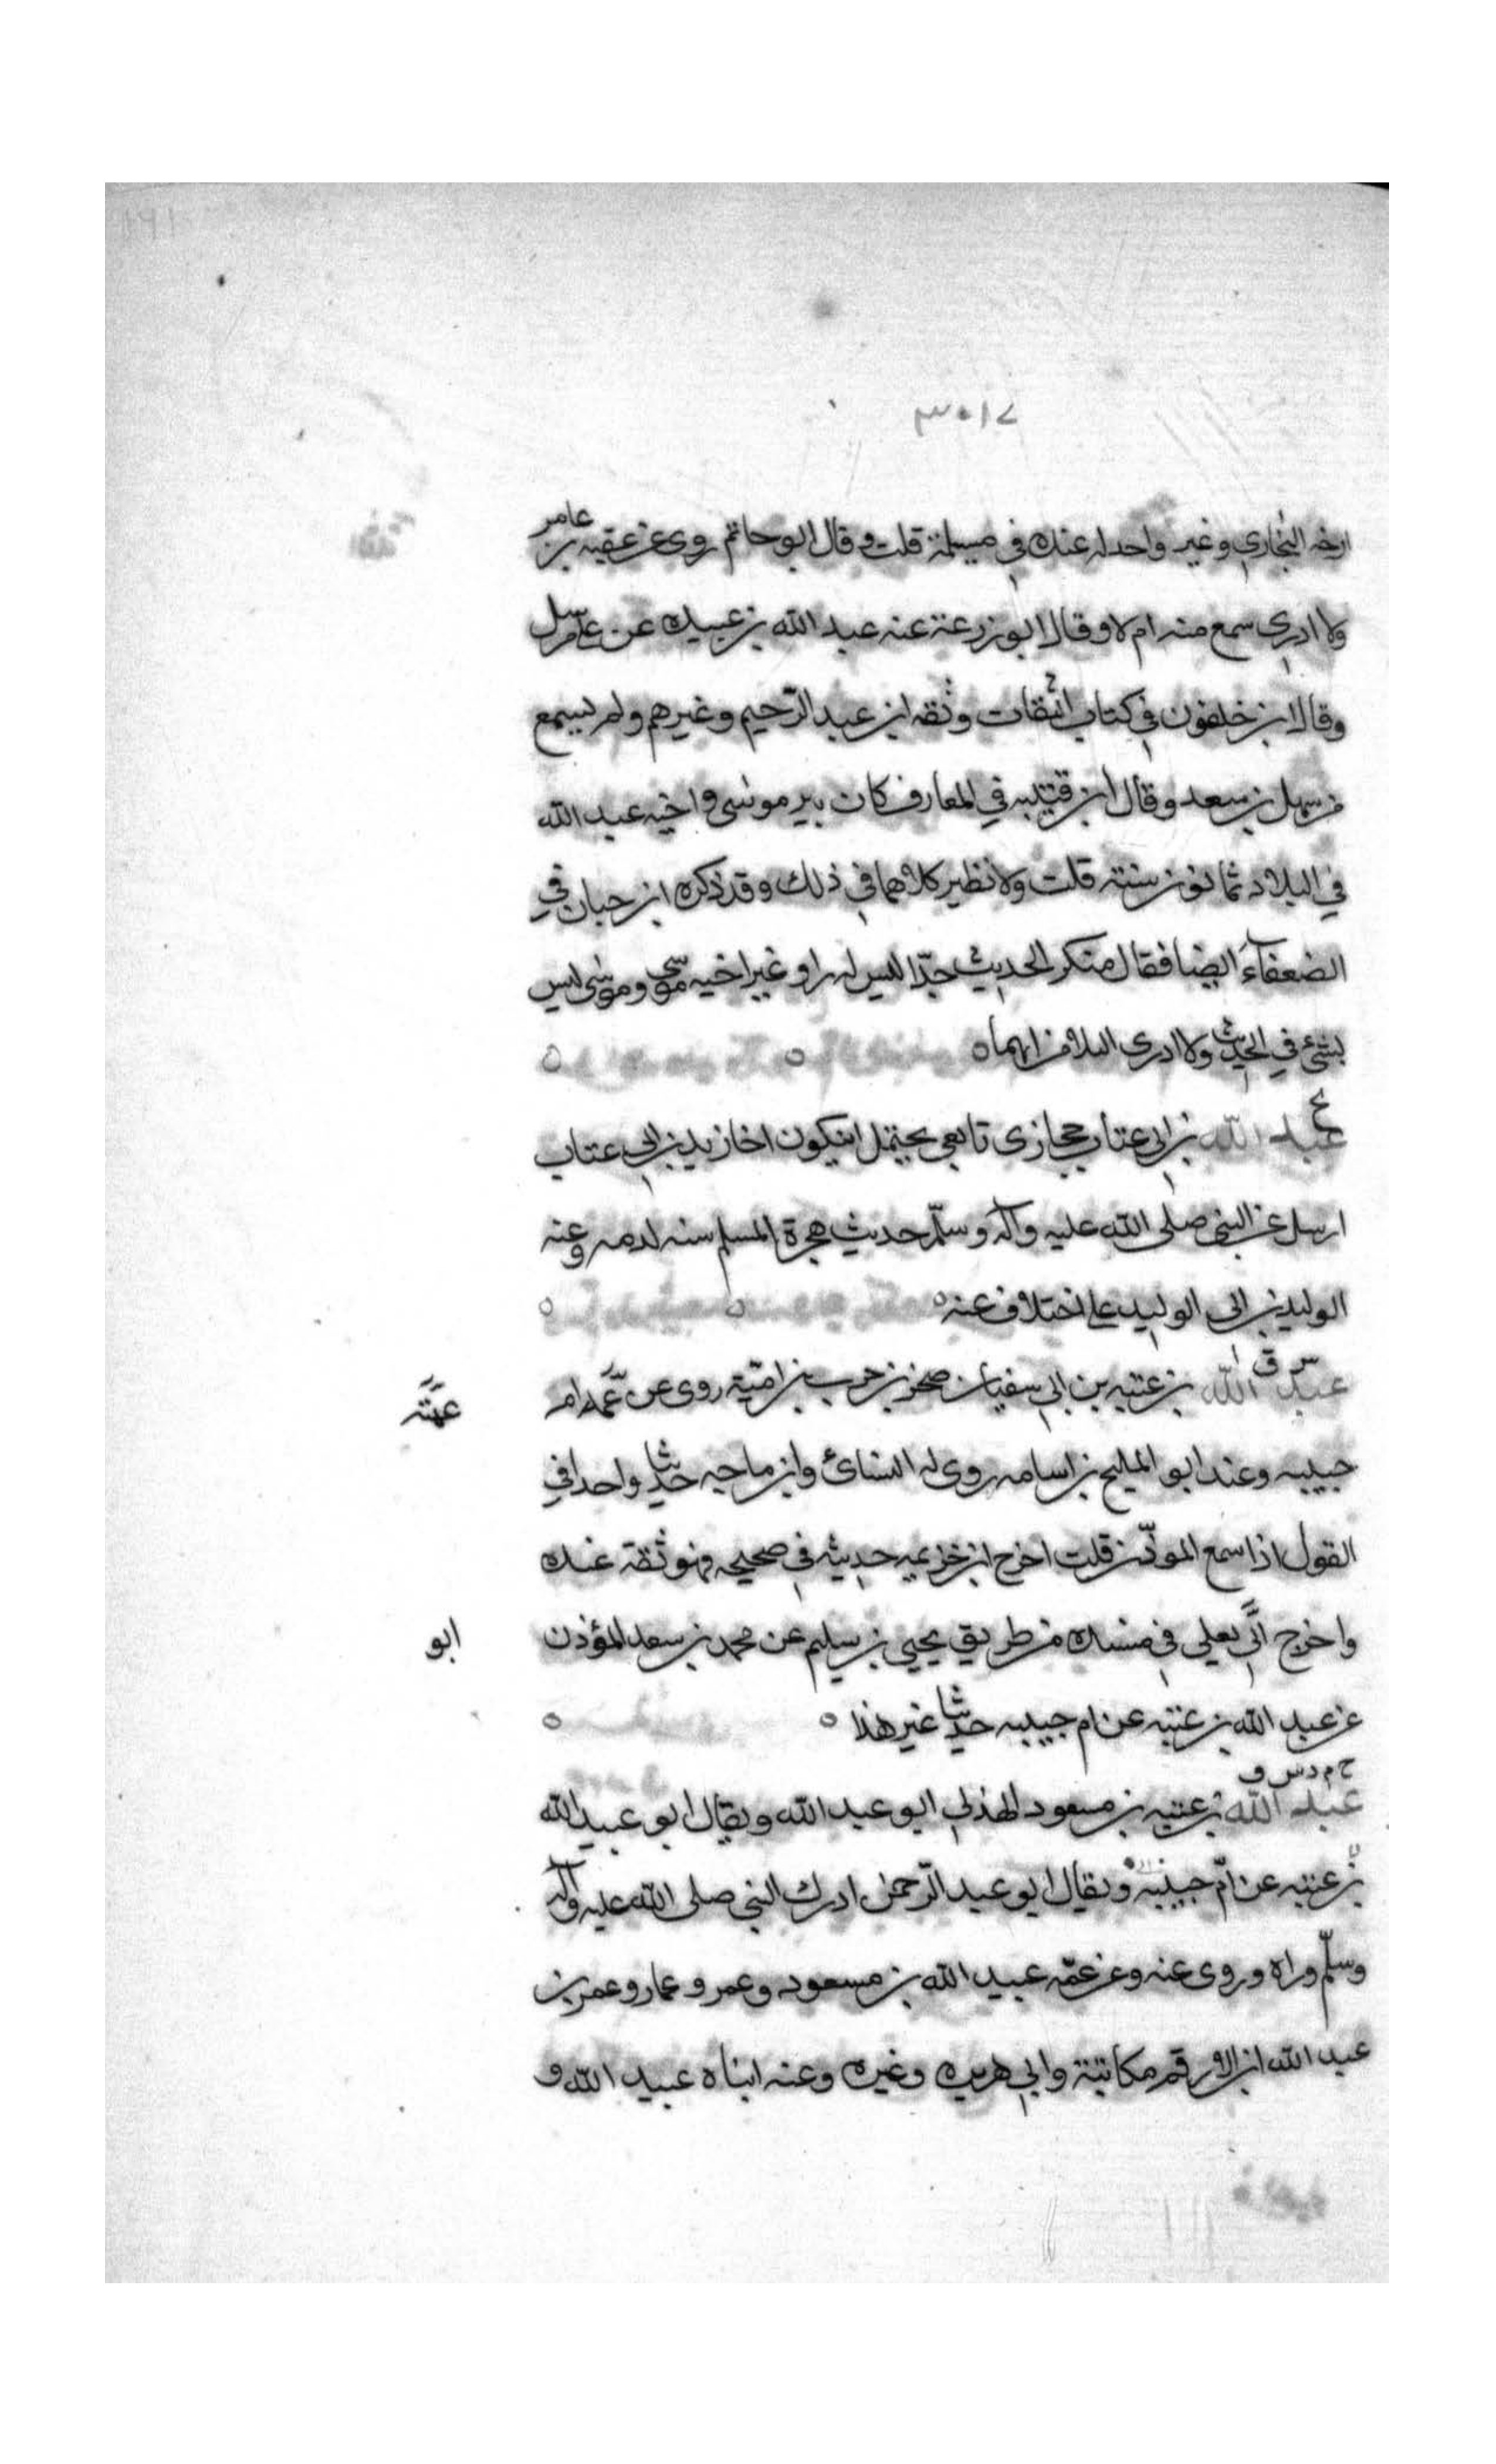 ٣٠١٧
ارخه البخاري وغير واحد له عنده في مسيلمة قلت وقال ابو حاتم روى عن عقبه بن عامر
ولا ادري سمع منه ام لا وقال ابو زرعة عنه عبد الله بن عبيده عن عامر سل
وقال ابن خلفون في كتاب الثقات وثقه ابن عبد الرحيم وغيرهم ولم يسمع
من سهل بن سعد وقال ابن قتيبه في المعارف كان بير موسى واخيه عبد الله
في البلاد ثمانون سنته قلت ولا نظير كلاهما في ذلك وقد ذكره ابن حبان في
الضعفاء ايضا فقال منكر الحديث جدّا ليس له راو غير اخيه موسى وموسى ليس
بشئ في الحديث ولا ادرى البلا من ايهما ه ه ه
ع
عبد الله بن ابى عتاب حجازى تابعي يحتمل ان يكون اخا زيد بن ابى عتاب
ارسل عن النبي صلى الله عليه وآله وسلّم حديث هجرة المسلم سنه لدمه وعنه
الوليد بن ابى الوليد على اختلاف عنه ه ه ه
س ق
عبد الله بن عتبه بن ابي سفيان صخر بن حرب بن اميّة روى عن عمه ام
عمَّته
حبيبه وعند ابو المليح بن اسامه روى له النسائ وابن ماجه حديثا واحدا في
القول اذا سمع الموذّن قلت اخرج ابن خزيمه حديثه في صحيحه فهو ثقة عنده
واخرج ابى يعلى في مسنده من طريق يحيى بن سليم عن محمد بن سعد المؤذن
ابو
عن عبد الله بن عتبه عن ام حبيبه حديثا غير هذا ه ه
خ م د س ق
عبد الله بن عتبه بن مسعود الهذلي ابو عبد الله ويقال ابو عبيد الله
بن عتبه عن امّ حبيبه ويقال ابو عبد الرّحمن ادرك النبي صلى الله عليه وآله
وسلّم وراه وروى عنه وعن عمّه عبيد الله بن مسعود وعمر وعمار وعمر بن
عبد الله ابن الارقم مكاتبة وابي هريره وغيره وعنه ابناه عبيد الله و